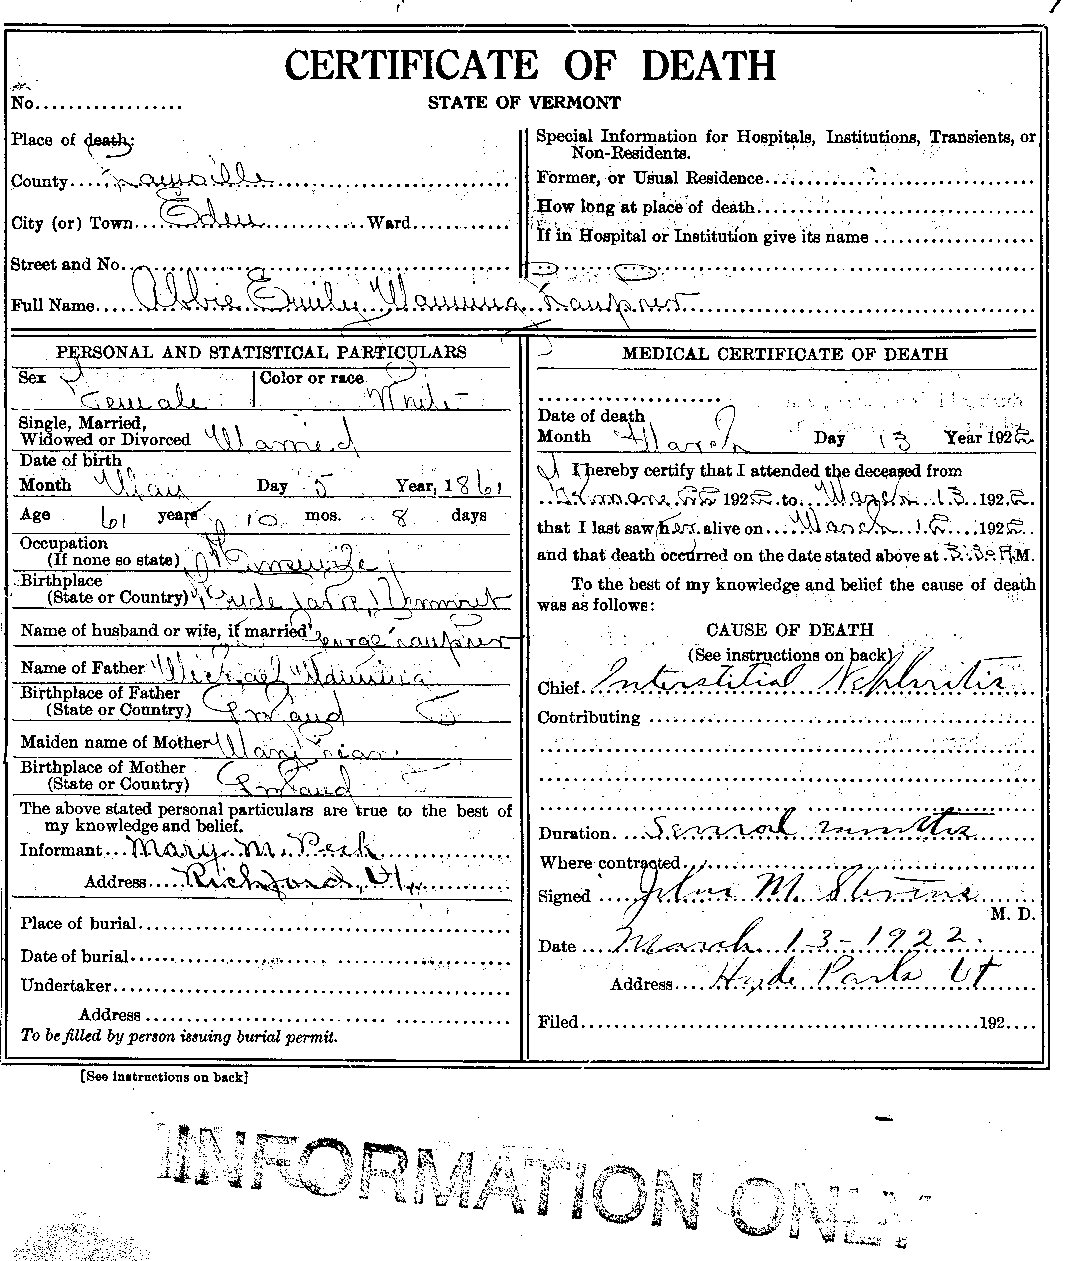 CERTIFICATE OF DEATH
No.
STATE OF VERMONT
Place of death:
County Lamoille
City (or) Town Eden Ward
Street and No.
Full Name Abbie Emily Manning
Special Information for Hospitals, Institutions, Transients, or
Non-Residents.
Former, or Usual Residence
How long at place of death
If in Hospital or Institution give its name
PERSONAL AND STATISTICAL PARTICULARS
Sex Color or race
Female White
Single, Married,
Widowed or Divorced Married
Date of birth
Month May Day 5 Year, 1861
Age 61 years 10 mos. 8 days
Occupation
(If none so state) Housewife
Birthplace
(State or Country) Hyde Park, Vermont
Name of husband or wife, if married George
Name of Father Michael Manning
Birthplace of Father
(State or Country)
Maiden name of Mother Mary
Birthplace of Mother
(State or Country)
The above stated personal particulars are true to the best of
my knowledge and belief.
Informant Mary M. Peck
Address Richford, Vt.
Place of burial
Date of burial
Undertaker
Address
To be filled by person issuing burial permit.
[See instructions on back]
MEDICAL CERTIFICATE OF DEATH
Date of death
Month March Day 13 Year 1922
I hereby certify that I attended the deceased from
1922 to March 13 1922
that I last saw her alive on March 12 1922
and that death occurred on the date stated above at 3.30 A M.
To the best of my knowledge and belief the cause of death
was as follows:
CAUSE OF DEATH
(See instructions on back)
Chief Interstitial Nephritis
Contributing
Duration Several months
Where contracted
Signed John M. Stevens
M. D.
Date March 13-1922.
Address Hyde Park Vt
Filed 192
INFORMATION ONLY